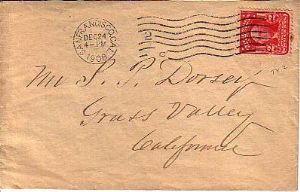 SAN FRANCISCO, CAL.
DEC 24
4 - PM
1908
2
Mr. S. P. Dorsey
Grass Valley
California